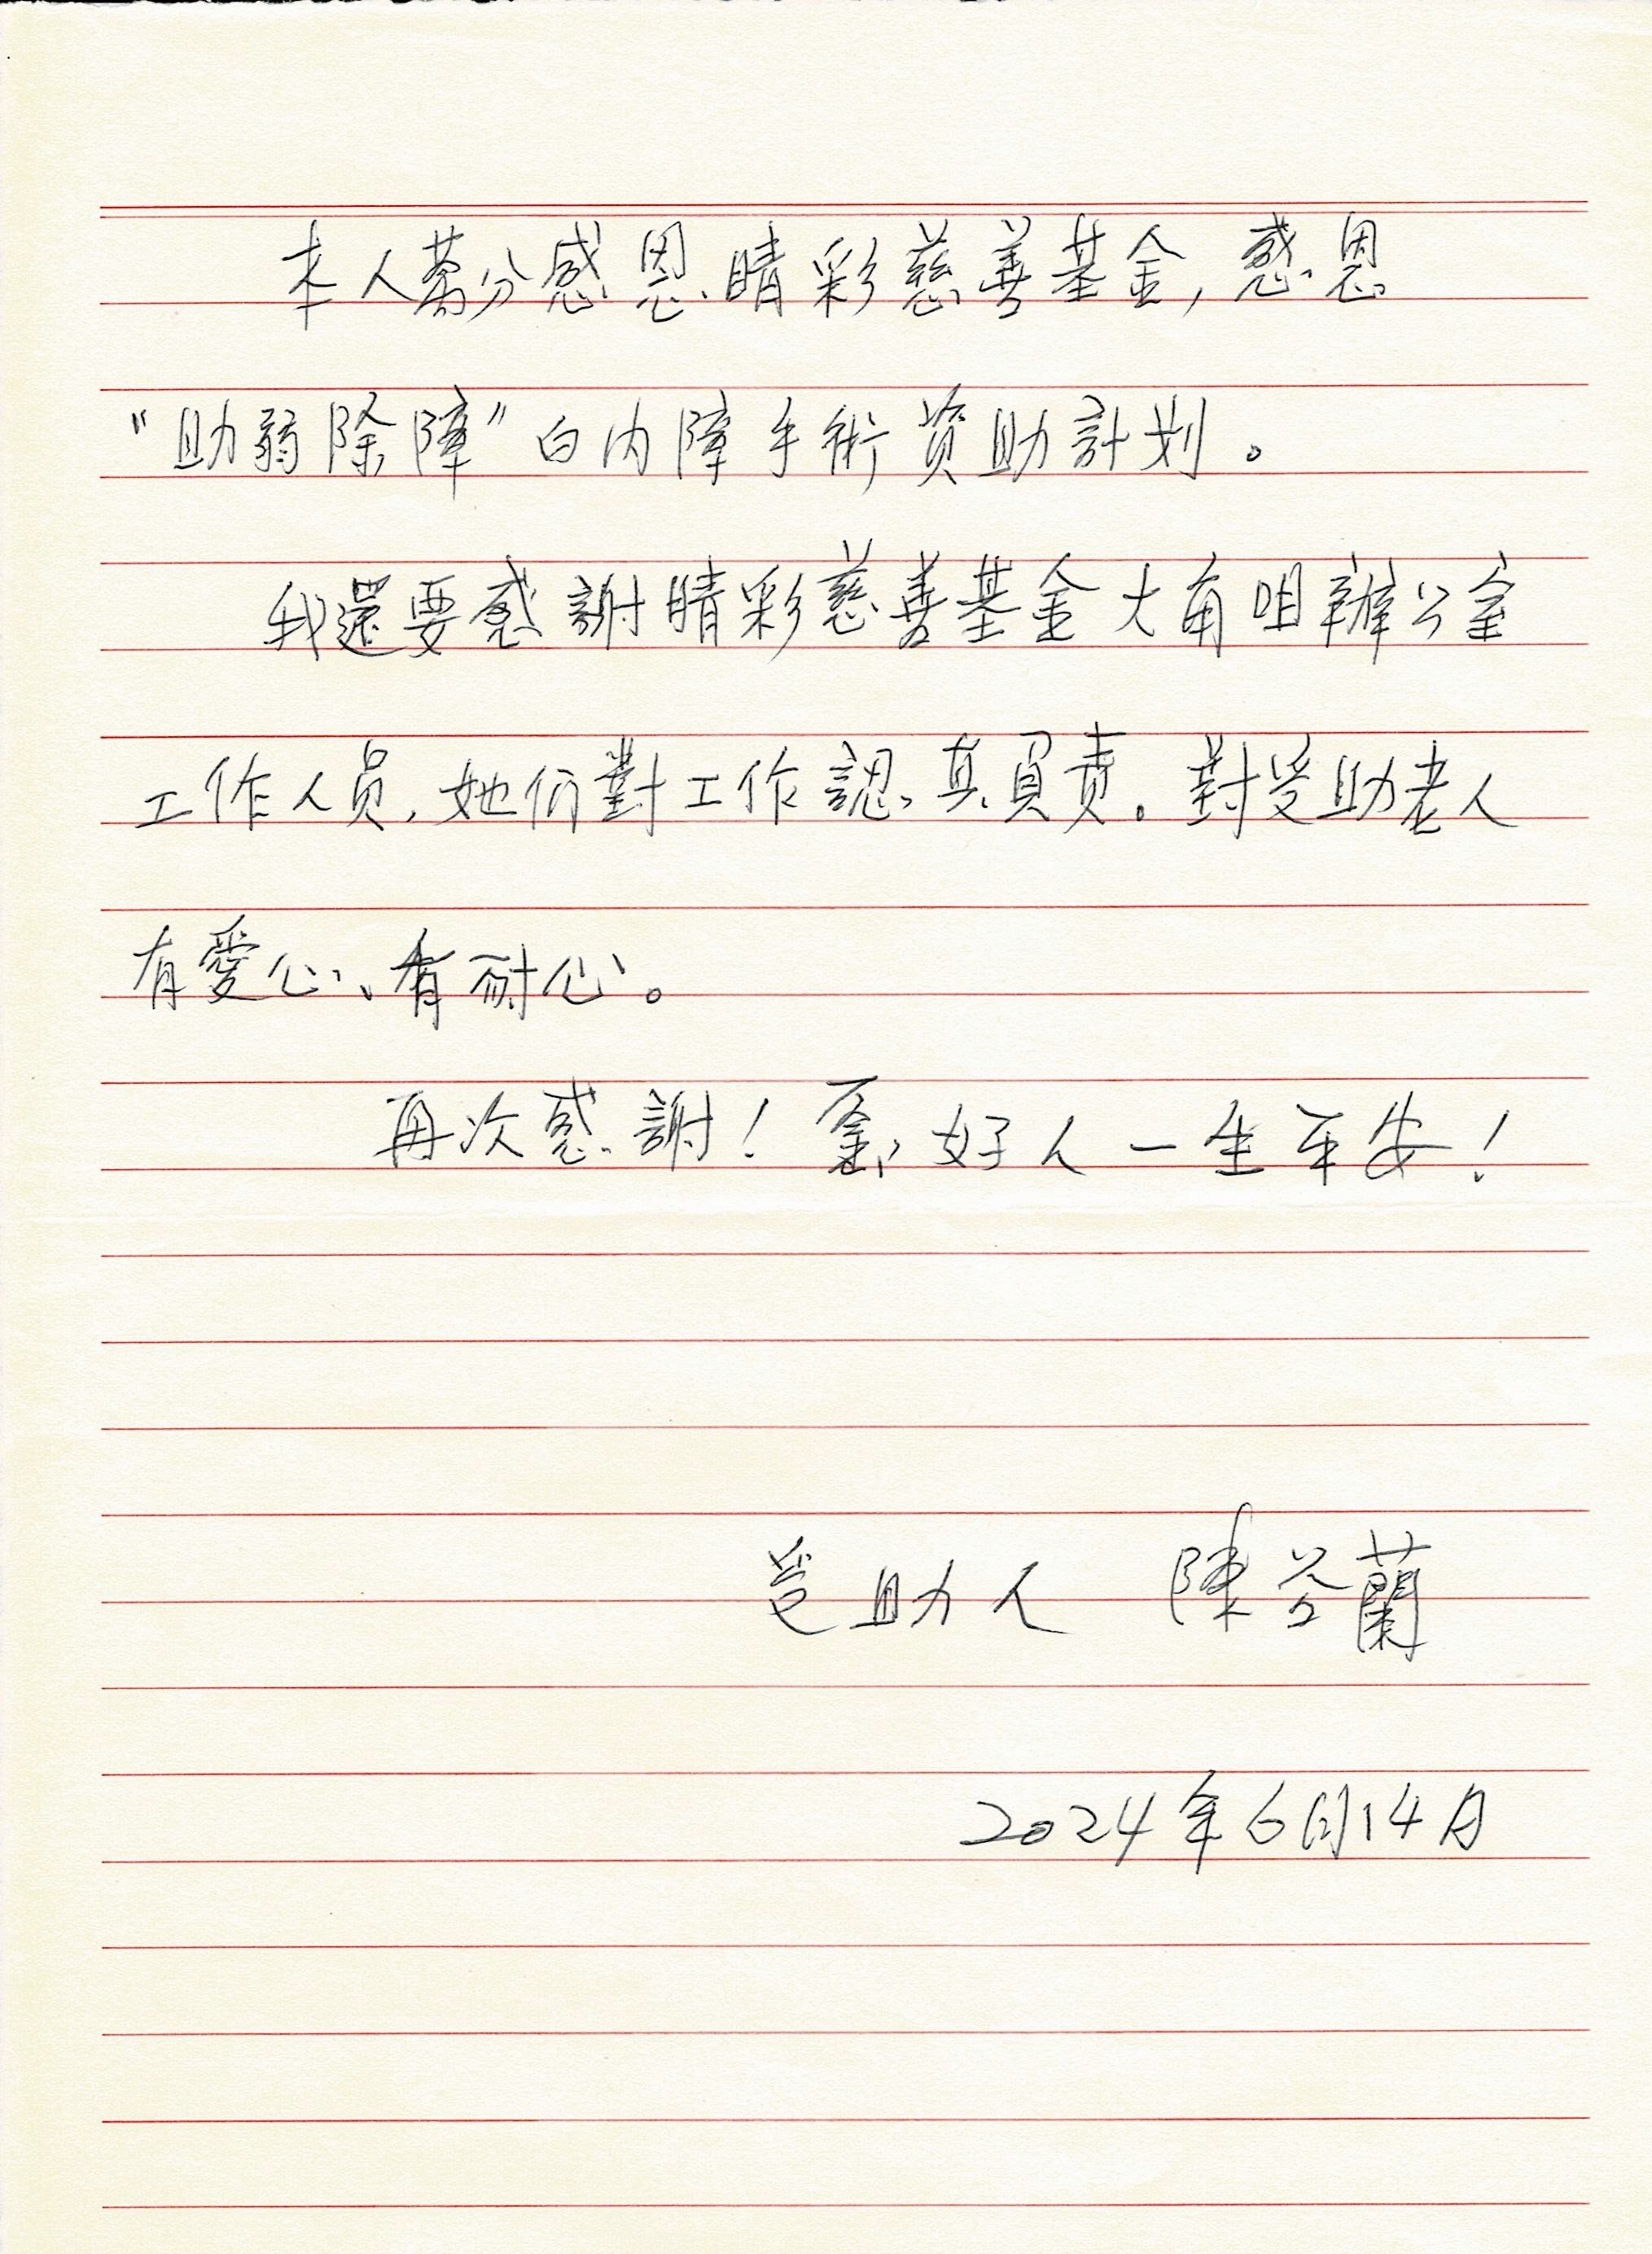 本人萬分感恩睛彩慈善基金,感恩
"助弱除障"白内障手術資助計划。
我還要感謝睛彩慈善基金大角咀辦公室
工作人员,她们對工作認真負责。對受助老人
有愛心、有耐心。
再次感謝!好人一生平安!
受助人 陳谷蘭
2024年6月14日